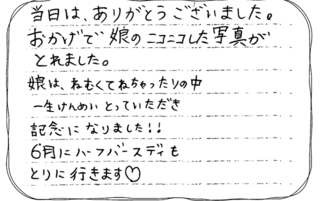 当日は、ありがとうございました。
おかげで娘のニコニコした写真が
とれました。
娘は、ねむくてねちゃったりの中
一生けんめいとっていただき
記念になりました!!
6月にハーフバースディも
とりに行きます♡